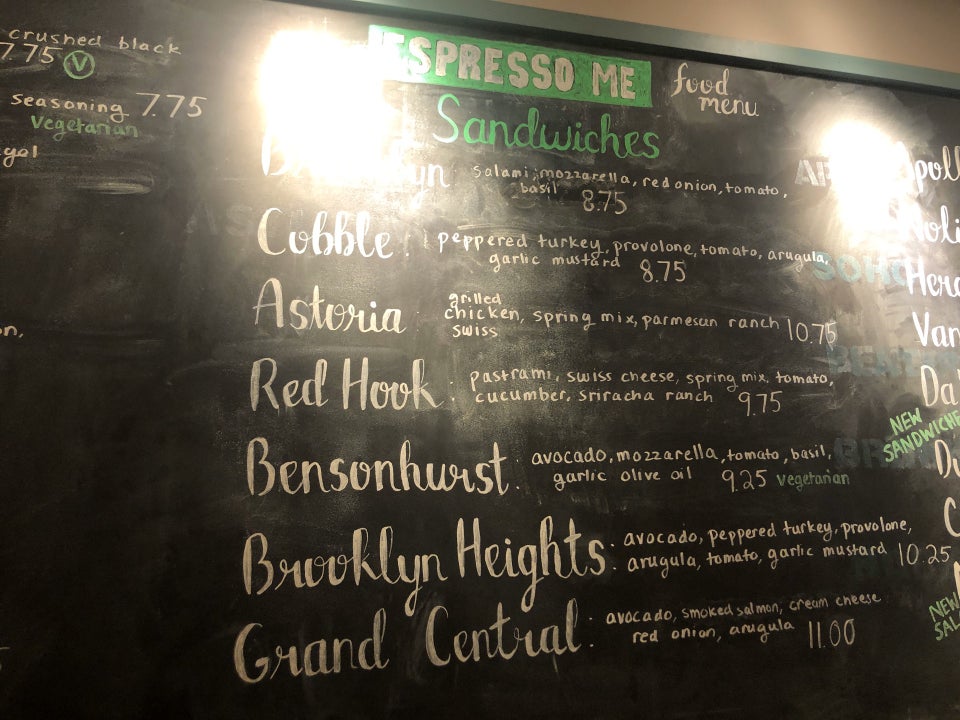 crushed black
7.75 V
seasoning 7.75
vegetarian
ESPRESSO ME
food
menu
Sandwiches
salami, mozzarella, red onion, tomato,
basil 8.75
Cobble: peppered turkey, provolone, tomato, arugula,
garlic mustard 8.75
Astoria grilled
chicken, spring mix, parmesan ranch 10.75
swiss
Red Hook: pastrami, swiss cheese, spring mix, tomato,
cucumber, sriracha ranch 9.75
Bensonhurst: avocado, mozzarella, tomato, basil,
garlic olive oil 9.25 vegetarian
Brooklyn Heights: avocado, peppered turkey, provolone,
arugula, tomato, garlic mustard 10.25
Grand Central: avocado, smoked salmon, cream cheese
red onion, arugula 11.00
SOHO
NEW